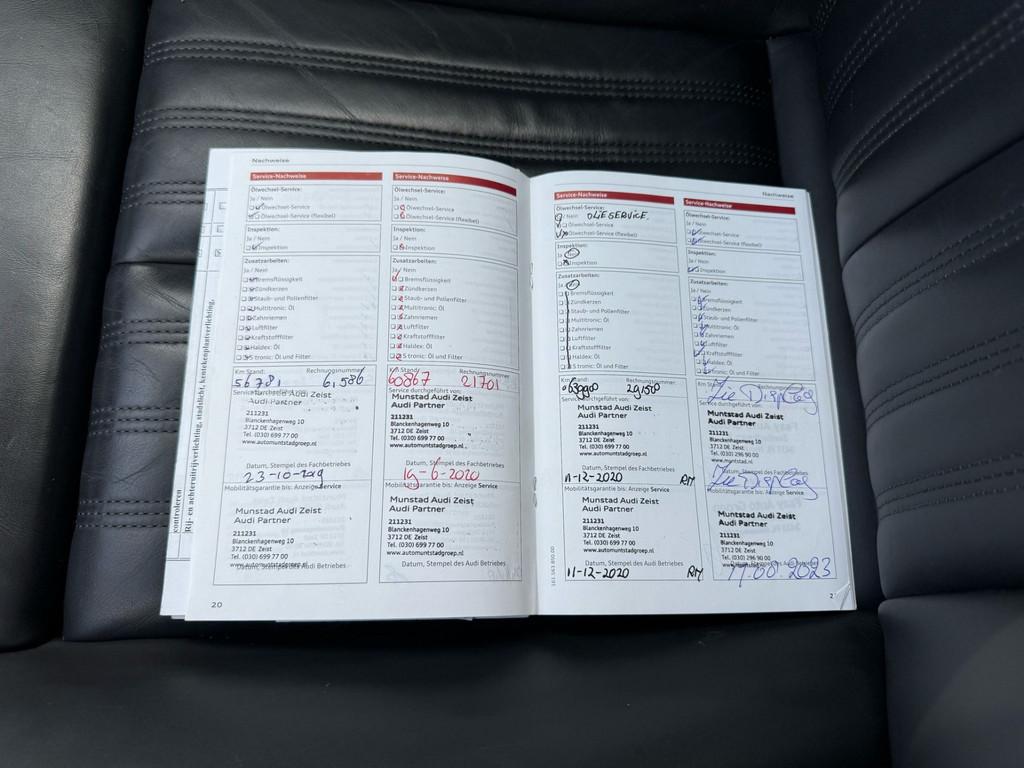 controleren
Rij- en achteruitrijverlichting, stadslicht, kentekenplaatverlichting,
Nachweise
Service-Nachweise
Ölwechsel-Service:
Ja / Nein
Ölwechsel-Service
Ölwechsel-Service (flexibel)
Inspektion:
Ja / Nein
Inspektion
Zusatzarbeiten:
Ja / Nein
Bremsflüssigkeit
Zündkerzen
Staub- und Pollenfilter
Multitronic: Öl
Zahnriemen
Luftfilter
Kraftstofffilter
Haldex: Öl
S tronic: Öl und Filter
Km Stand: Rechnungsnummer:
56781 61586
Service durchgeführt von:
Munstad Audi Zeist
Audi Partner
211231
Blanckenhagenweg 10
3712 DE Zeist
Tel. (030) 699 77 00
www.automuntstadgroep.nl
Datum, Stempel des Fachbetriebes
23-10-2019
Mobilitätsgarantie bis: Anzeige Service
Munstad Audi Zeist
Audi Partner
211231
Blanckenhagenweg 10
3712 DE Zeist
Tel. (030) 699 77 00
www.automuntstadgroep.nl
Datum, Stempel des Audi Betriebes
20
Service-Nachweise
Ölwechsel-Service:
Ja / Nein
Ölwechsel-Service
Ölwechsel-Service (flexibel)
Inspektion:
Ja / Nein
Inspektion
Zusatzarbeiten:
Ja / Nein
Bremsflüssigkeit
Zündkerzen
Staub- und Pollenfilter
Multitronic: Öl
Zahnriemen
Luftfilter
Kraftstofffilter
Haldex: Öl
S tronic: Öl und Filter
Km Stand: Rechnungsnummer:
60867 21701
Service durchgeführt von:
Munstad Audi Zeist
Audi Partner
211231
Blanckenhagenweg 10
3712 DE Zeist
Tel. (030) 699 77 00
www.automuntstadgroep.nl
Datum, Stempel des Fachbetriebes
19-6-2020
Mobilitätsgarantie bis: Anzeige Service
Munstad Audi Zeist
Audi Partner
211231
Blanckenhagenweg 10
3712 DE Zeist
Tel. (030) 699 77 00
www.automuntstadgroep.nl
Datum, Stempel des Audi Betriebes
Service-Nachweise
Ölwechsel-Service:
Ja / Nein OLIESERVICE.
Ölwechsel-Service
Ölwechsel-Service (flexibel)
Inspektion:
Ja / Nein
Inspektion
Zusatzarbeiten:
Ja / Nein
Bremsflüssigkeit
Zündkerzen
Staub- und Pollenfilter
Multitronic: Öl
Zahnriemen
Luftfilter
Kraftstofffilter
Haldex: Öl
S tronic: Öl und Filter
Km Stand: Rechnungsnummer:
Service durchgeführt von:
Munstad Audi Zeist
Audi Partner
211231
Blanckenhagenweg 10
3712 DE Zeist
Tel. (030) 699 77 00
www.automuntstadgroep.nl
Datum, Stempel des Fachbetriebes
11-12-2020 RM
Mobilitätsgarantie bis: Anzeige Service
Munstad Audi Zeist
Audi Partner
211231
Blanckenhagenweg 10
3712 DE Zeist
Tel. (030) 699 77 00
www.automuntstadgroep.nl
Datum, Stempel des Audi Betriebes
11-12-2020 RM
Nachweise
Service-Nachweise
Ölwechsel-Service:
Ja / Nein
Ölwechsel-Service
Ölwechsel-Service (flexibel)
Inspektion:
Ja / Nein
Inspektion
Zusatzarbeiten:
Ja / Nein
Bremsflüssigkeit
Zündkerzen
Staub- und Pollenfilter
Multitronic: Öl
Zahnriemen
Luftfilter
Kraftstofffilter
Haldex: Öl
S tronic: Öl und Filter
Km Stand:
Zie Display
Service durchgeführt von:
Muntstad Audi Zeist
Audi Partner
211231
Blanckenhagenweg 10
3712 DE Zeist
Tel. (030) 296 90 00
www.muntstad.nl
Datum, Stempel des Fachbetriebes
Zie Display
Mobilitätsgarantie bis: Anzeige Service
Muntstad Audi Zeist
Audi Partner
211231
Blanckenhagenweg 10
3712 DE Zeist
Tel. (030) 296 90 00
Datum, Stempel des Audi Betriebes